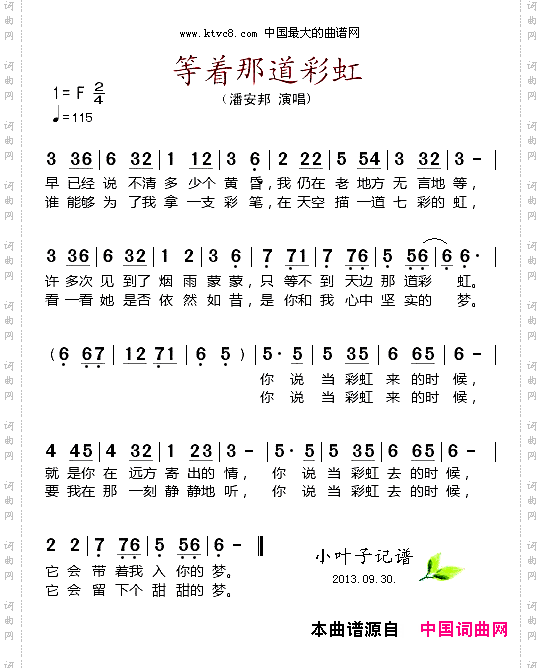 www.ktvc8.com 中国最大的曲谱网
等着那道彩虹
（潘安邦 演唱）
1= F 2/4
♩=115
3 36 | 6 32 | 1 12 | 3 6 | 2 22 | 5 54 | 3 32 | 3 – |
早 已经 说 不清 多 少个 黄 昏，我 仍在 老 地方 无 言地 等，
谁 能够 为 了我 拿 一支 彩 笔，在 天空 描 一道 七 彩的 虹，
3 36 | 6 32 | 1 2 | 3 6 | 7 71 | 7 76 | 5 56 | 6 6· |
许 多次 见 到了 烟 雨 蒙 蒙，只 等不 到 天边 那 道彩 虹。
看 一看 她 是否 依 然 如 昔，是 你和 我 心中 坚 实的 梦。
( 6 67 | 12 71 | 6 5 ) | 5· 5 | 5 35 | 6 65 | 6 – |
你 说 当 彩虹 来 的时 候，
你 说 当 彩虹 来 的时 候，
4 45 | 4 32 | 1 23 | 3 – | 5· 5 | 5 35 | 6 65 | 6 – |
就 是你 在 远方 寄 出的 情， 你 说 当 彩虹 去 的时 候，
要 我在 那 一刻 静 静地 听， 你 说 当 彩虹 去 的时 候，
2 2 | 7 76 | 5 56 | 6 – ‖
它 会 带 着我 入 你的 梦。
它 会 留 下个 甜 甜的 梦。
小叶子记谱
2013.09.30.
本曲谱源自 中国词曲网
词曲网